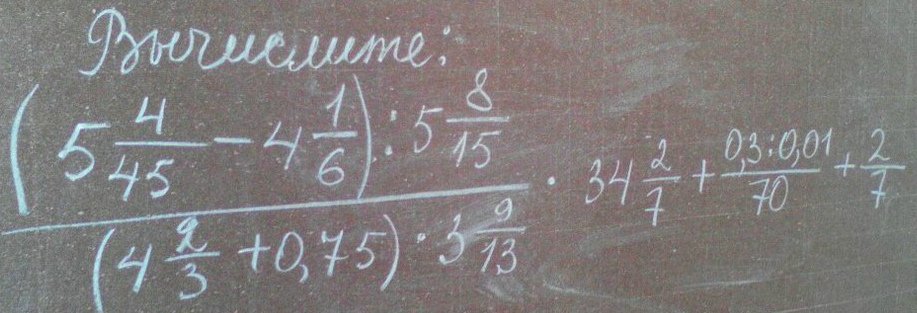 Вычислите:
(5 4/45 − 4 1/6) : 5 8/15
(4 2/3 + 0,75) · 3 9/13
· 34 2/7 + 0,3:0,01/70 + 2/7